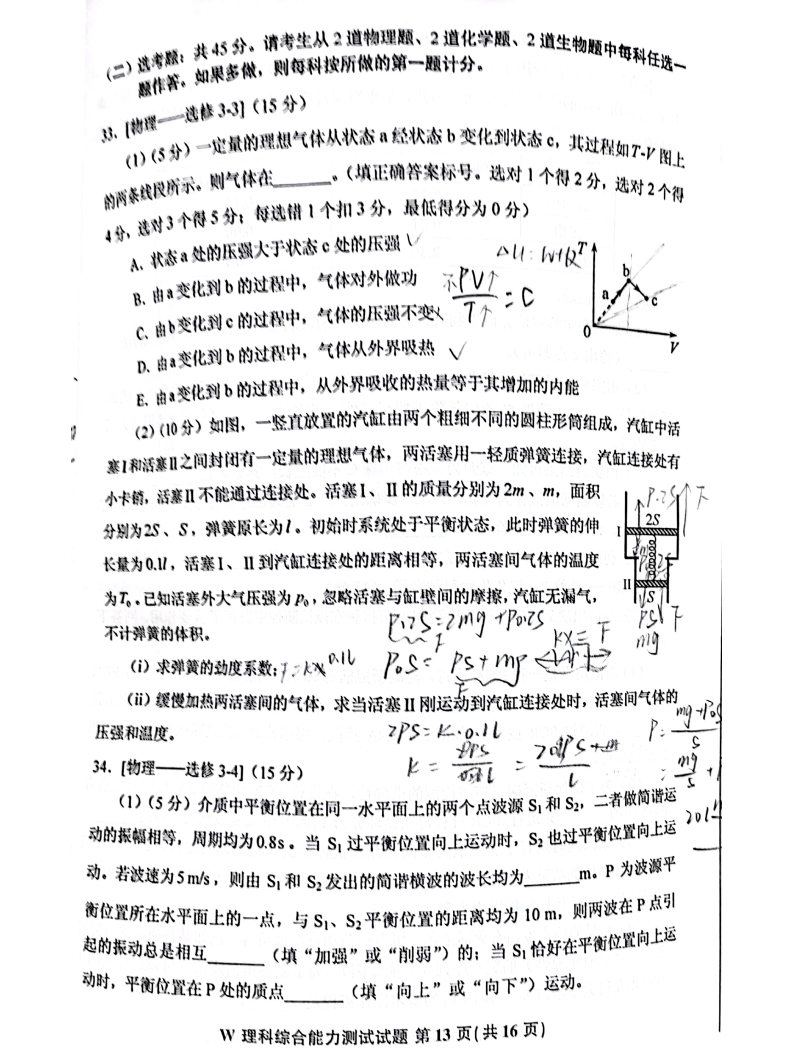 (二)选考题：共45分。请考生从2道物理题、2道化学题、2道生物题中每科任选一
题作答。如果多做，则每科按所做的第一题计分。
33. [物理——选修3-3]（15分）
(1)（5分）一定量的理想气体从状态a经状态b变化到状态c，其过程如T-V图上
的两条线段所示。则气体在______。（填正确答案标号。选对1个得2分，选对2个得
4分，选对3个得5分；每选错1个扣3分，最低得分为0分）
A. 状态a处的压强大于状态c处的压强 √
B. 由a变化到b的过程中，气体对外做功
C. 由b变化到c的过程中，气体的压强不变×
D. 由a变化到b的过程中，气体从外界吸热 √
E. 由a变化到b的过程中，从外界吸收的热量等于其增加的内能
ΔU=W+Q
不PV↑/T↑=C
T
b
a
c
0
V
(2)（10分）如图，一竖直放置的汽缸由两个粗细不同的圆柱形筒组成，汽缸中活
塞Ⅰ和活塞Ⅱ之间封闭有一定量的理想气体，两活塞用一轻质弹簧连接，汽缸连接处有
小卡销，活塞Ⅱ不能通过连接处。活塞Ⅰ、Ⅱ的质量分别为2m、m，面积
分别为2S、S，弹簧原长为l。初始时系统处于平衡状态，此时弹簧的伸
长量为0.1l，活塞Ⅰ、Ⅱ到汽缸连接处的距离相等，两活塞间气体的温度
为T₀。已知活塞外大气压强为p₀，忽略活塞与缸壁间的摩擦，汽缸无漏气，
不计弹簧的体积。
P·2S F
2S
I
II
S
PS F
mg
P·2S=2mg+P₀·2S
F
(i) 求弹簧的劲度系数；F=kx 0.1l
P₀S=PS+mg
F
kx=F
(ii) 缓慢加热两活塞间的气体，求当活塞Ⅱ刚运动到汽缸连接处时，活塞间气体的
压强和温度。
2PS=k·0.1l
P=mg+P₀S/S
34. [物理——选修3-4]（15分）
(1)（5分）介质中平衡位置在同一水平面上的两个点波源S₁和S₂，二者做简谐运
动的振幅相等，周期均为0.8s。当S₁过平衡位置向上运动时，S₂也过平衡位置向上运
动。若波速为5m/s，则由S₁和S₂发出的简谐横波的波长均为______m。P为波源平
衡位置所在水平面上的一点，与S₁、S₂平衡位置的距离均为10 m，则两波在P点引
起的振动总是相互______（填“加强”或“削弱”）的；当S₁恰好在平衡位置向上运
动时，平衡位置在P处的质点______（填“向上”或“向下”）运动。
W 理科综合能力测试试题 第13页(共16页)